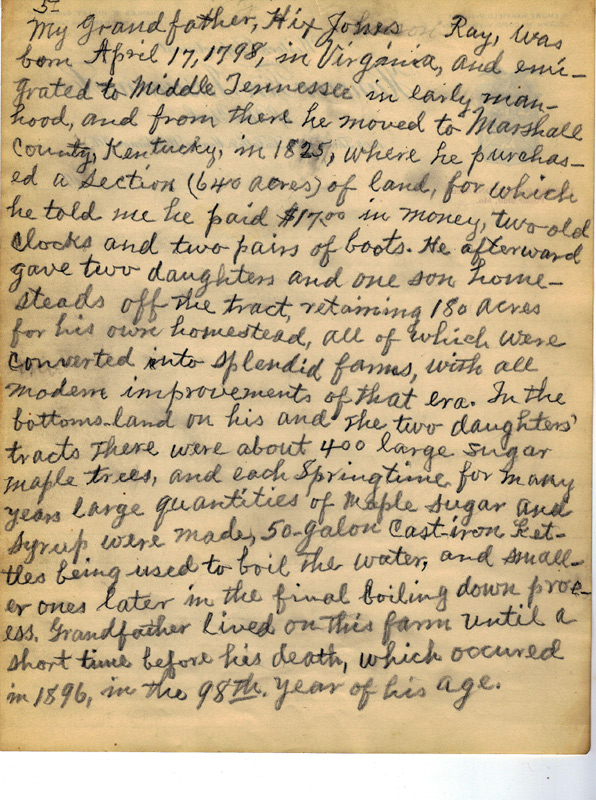 5-
My Grandfather, Hix Jones Ray, was
born April 17, 1798, in Virginia, and emi-
grated to Middle Tennessee in early man-
hood, and from there he moved to Marshall
County, Kentucky, in 1825, where he purchas-
ed a section (640 acres) of land, for which
he told me he paid $17.00 in money, two old
clocks and two pairs of boots. He afterward
gave two daughters and one son home-
steads off the tract, retaining 180 acres
for his own homestead, all of which were
converted into splendid farms, with all
modern improvements of that era. In the
bottoms-land on his and the two daughters'
tracts there were about 400 large sugar
maple trees, and each Springtime for many
years large quantities of Maple sugar and
syrup were made, 50-galon cast-iron ket-
tles being used to boil the water, and small-
er ones later in the final boiling down proc-
ess. Grandfather lived on this farm until a
short time before his death, which occured
in 1896, in the 98th. year of his age.